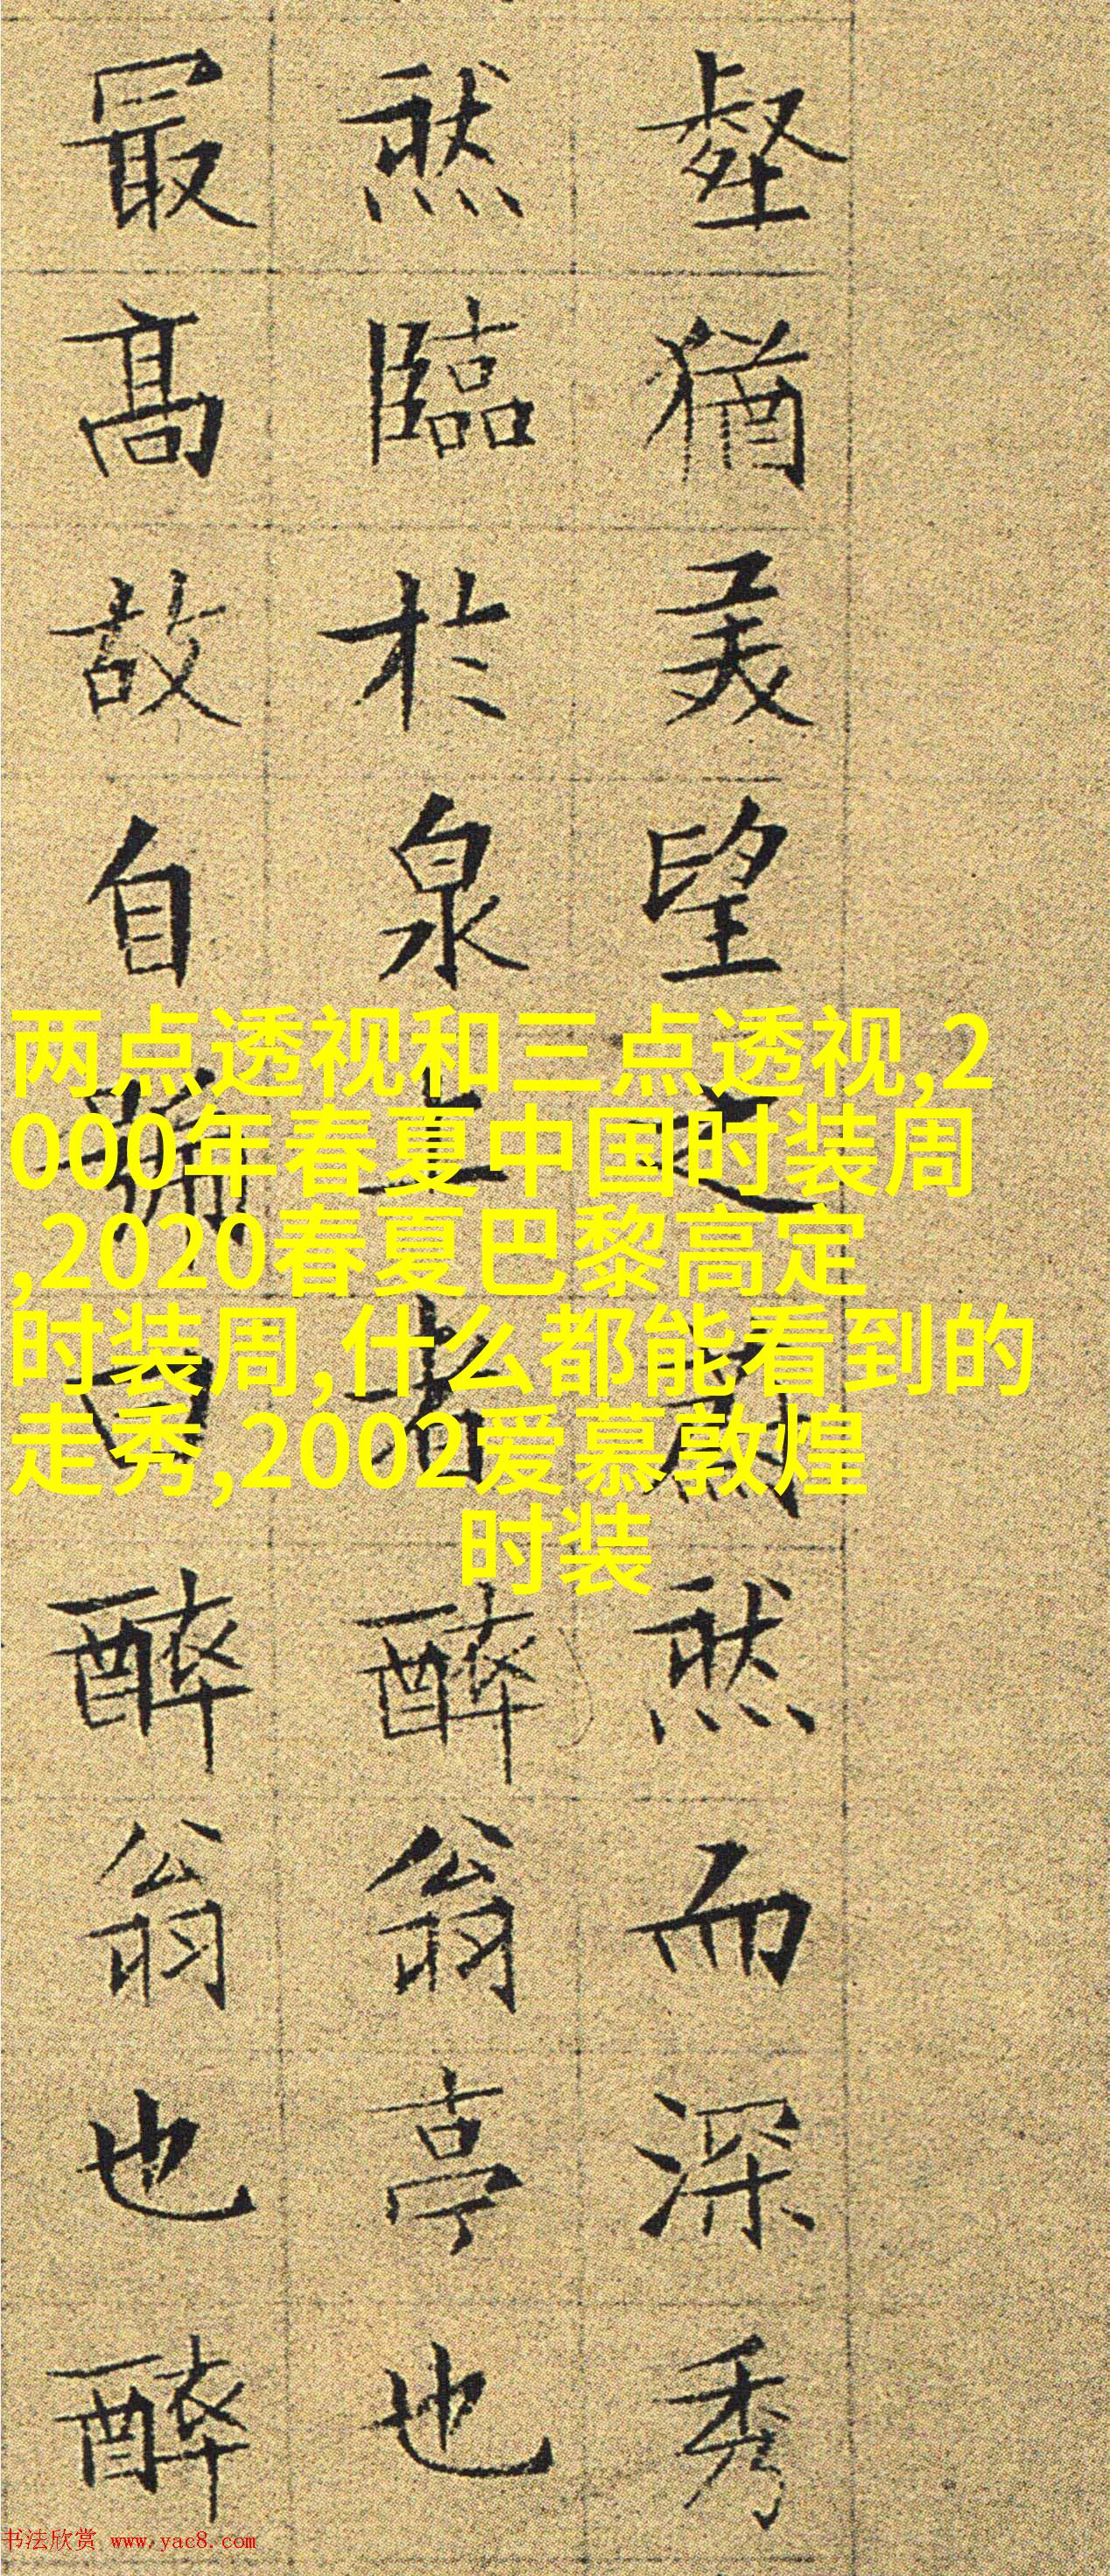 壑猶美望之蔚然而深秀
然臨於泉上者醉翁亭也
最高故自號曰醉翁也醉
两点透视和三点透视,2
000年春夏中国时装周
,2020春夏巴黎高定
时装周,什么都能看到的
走秀,2002爱慕敦煌
时装
书法欣赏 www.yac8.com